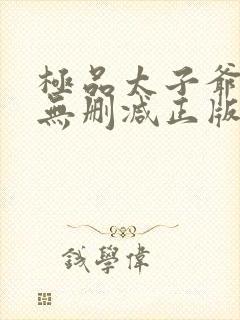 極品太子爺
無删减正版
錢學偉